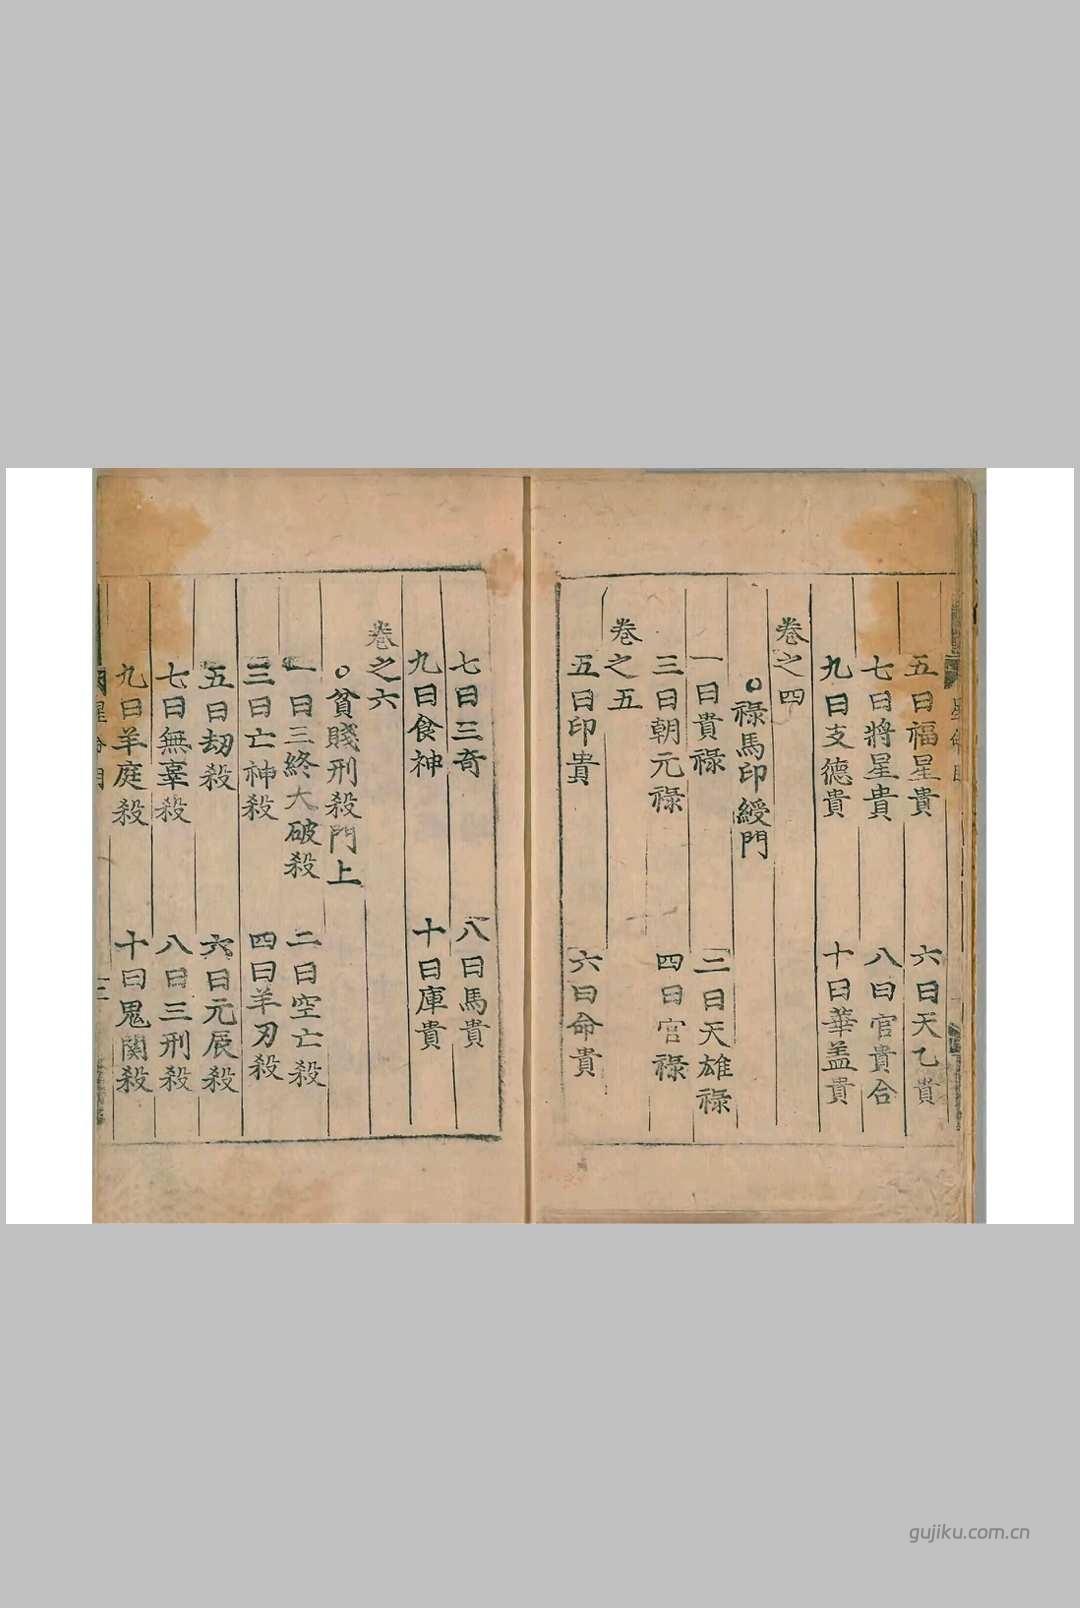 五曰福星貴　六曰天乙貴
七曰將星貴　八曰官貴合
九曰支德貴　十曰華盖貴
卷之四
○祿馬印綬門
一曰貴祿　二曰天雄祿
三曰朝元祿　四曰官祿
卷之五
五曰印貴　六曰命貴
七曰三奇　八曰馬貴
九曰食神　十曰庫貴
卷之六
○貧賤刑殺門上
一曰三終大破殺　二曰空亡殺
三曰亡神殺　四曰羊刃殺
五曰劫殺　六曰元辰殺
七曰無辜殺　八曰三刑殺
九曰羊庭殺　十曰鬼関殺
gujiku.com.cn